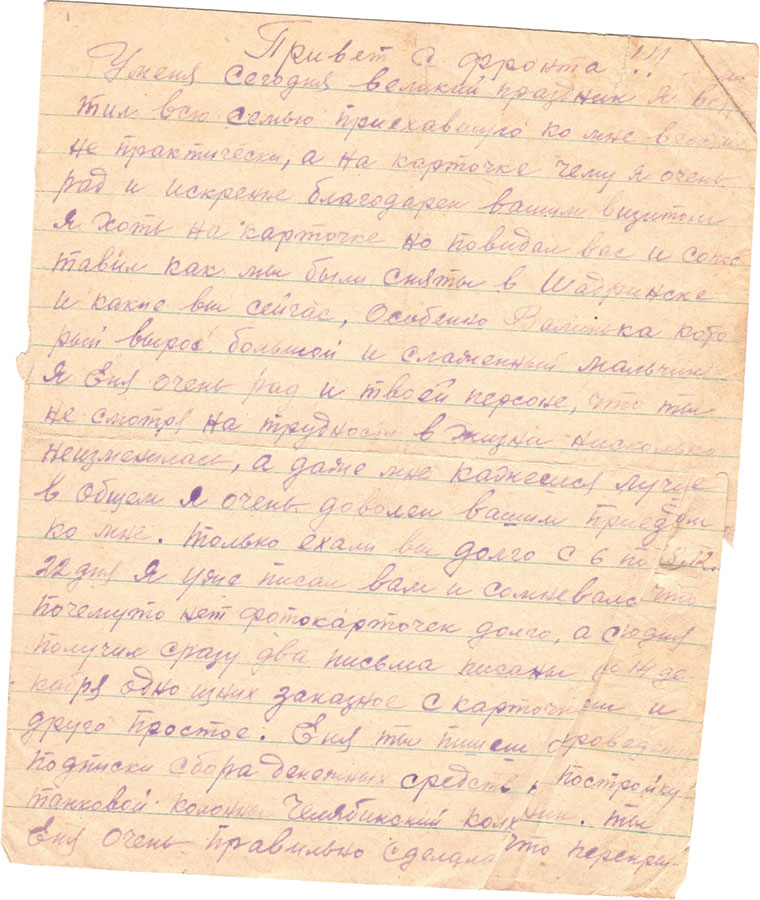 Привет с фронта !!!
У меня сегодня великий праздник я
тил всю семью приехавшую ко мне в
не практически, а на карточке чему я очень
рад и искренне благодарен вашим визитом
я хоть на карточке но повидал вас и сопос
тавил как мы были сняты в Шадринске
и какие вы сейчас, Особенно Валинька кото
рый вырос большой и славненный мальчик
Я Еня очень рад и твоей персоне, что ты
не смотря на трудности в жизни нисколько
неизменилась, а даже мне кажется лучше
в общем я очень доволен вашим приездом
ко мне. только ехали вы долго с 6 по
22 дня я уже писал вам и сомневался что
почемуто нет фотокарточек долго, а сегодня
получил сразу два письма писаны 14 де
кабря одно изних заказное с карточками и
друго простое. Еня ты пишеш о проведении
подписки сбора денежных средств постройку
танковой колонны Челябинский колхозник. ты
Еня очень правильно сделала что